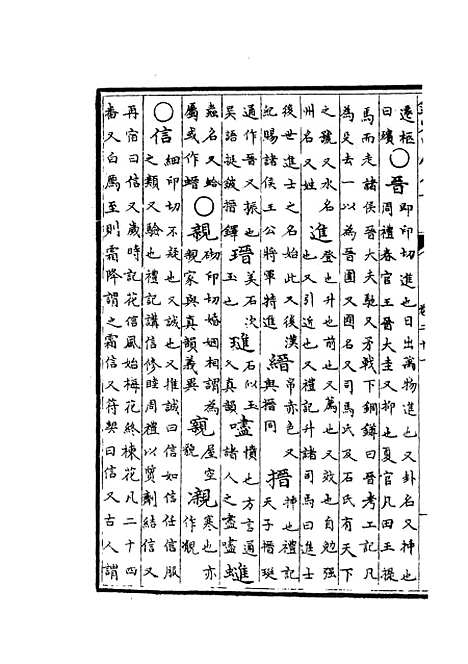 還柩曰殯○晉即印切進也日出萬物進也又卦名又神也周禮春官王晉大圭又抑也夏官凡田王提
馬而走諸侯晉大夫馳又矛戟下銅鐏曰晉考工記凡為殳去一以為晉圍又國名又司馬氏及石氏有天下
之號又水名州名又姓進登也升也前也又薦也又效也自勉強也又引近也又禮記升諸司馬曰進士
後世進士之名始此又後漢紀賜諸侯王公將軍特進縉帛赤色又與搢同搢神也禮記天子搢珽
通作晉又振也吳語挺鈹搢鐸瑨美石次玉也璡石似玉又真韻嚍憤也方言通諸人之嚍嚍
蟲名又蛤屬或作蝔○親砌印切婚姻相謂為親家與真韻義異寴屋空貌寒也亦作
○信細印切不疑也又誠也又推誠曰信如信任信服之類又驗也禮記講信修睦周禮以質劑結信又
再宿曰信又歲時記花信風始梅花終楝花凡二十四番又白鴈至則霜降謂之霜信又符契曰信又古人謂